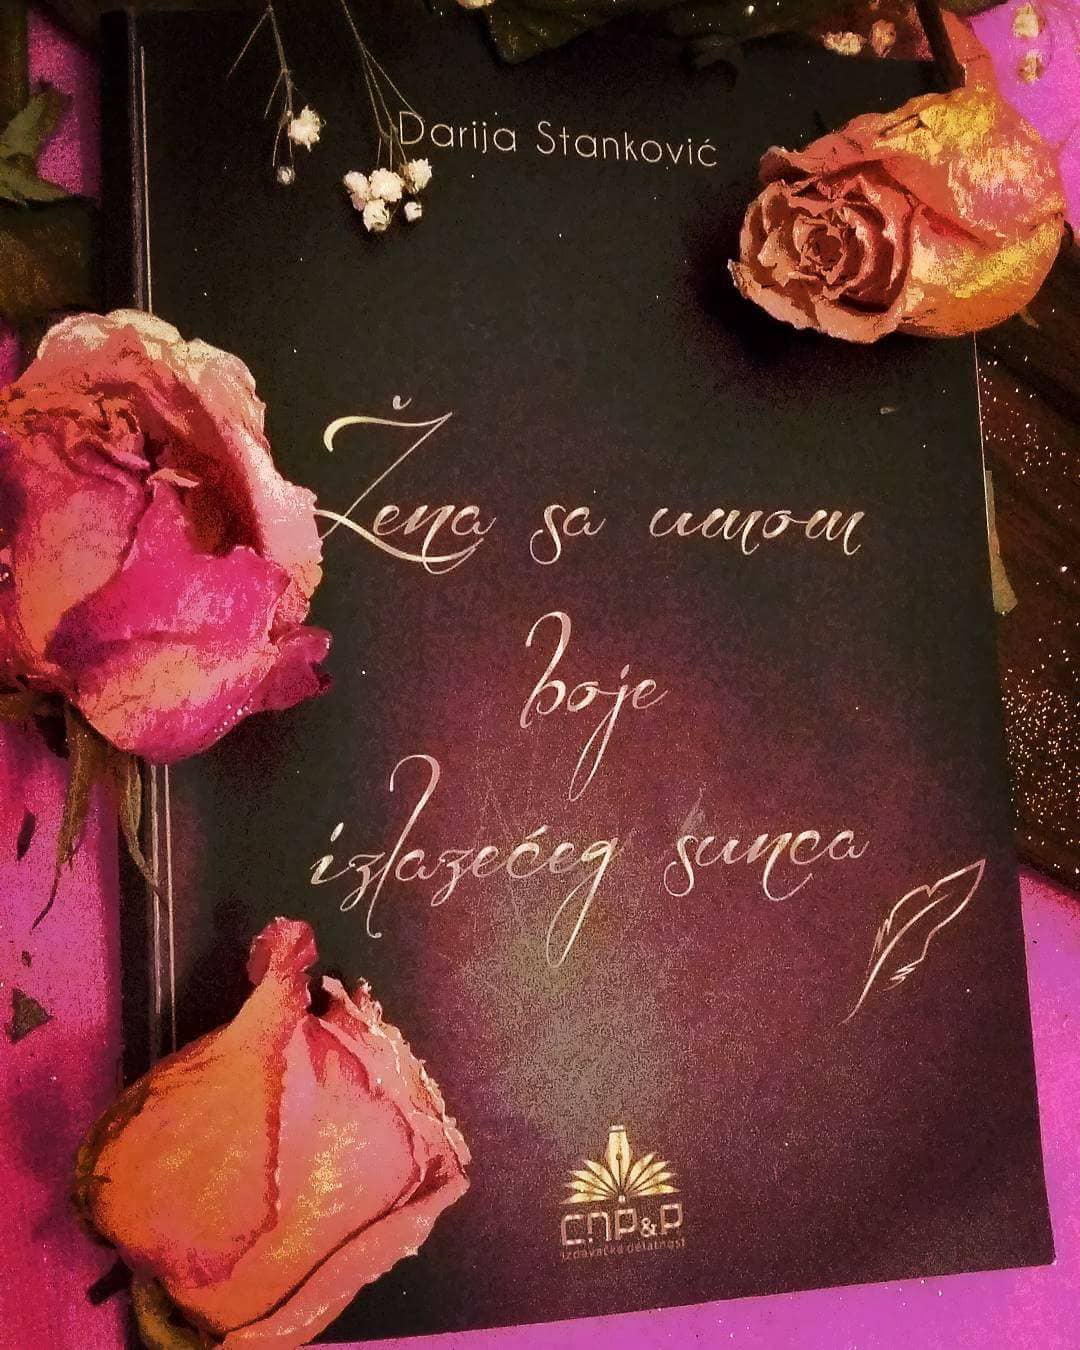 Darija Stanković
Žena sa umom
boje
izlazećeg sunca
CNP&P
izdavačka delatnost